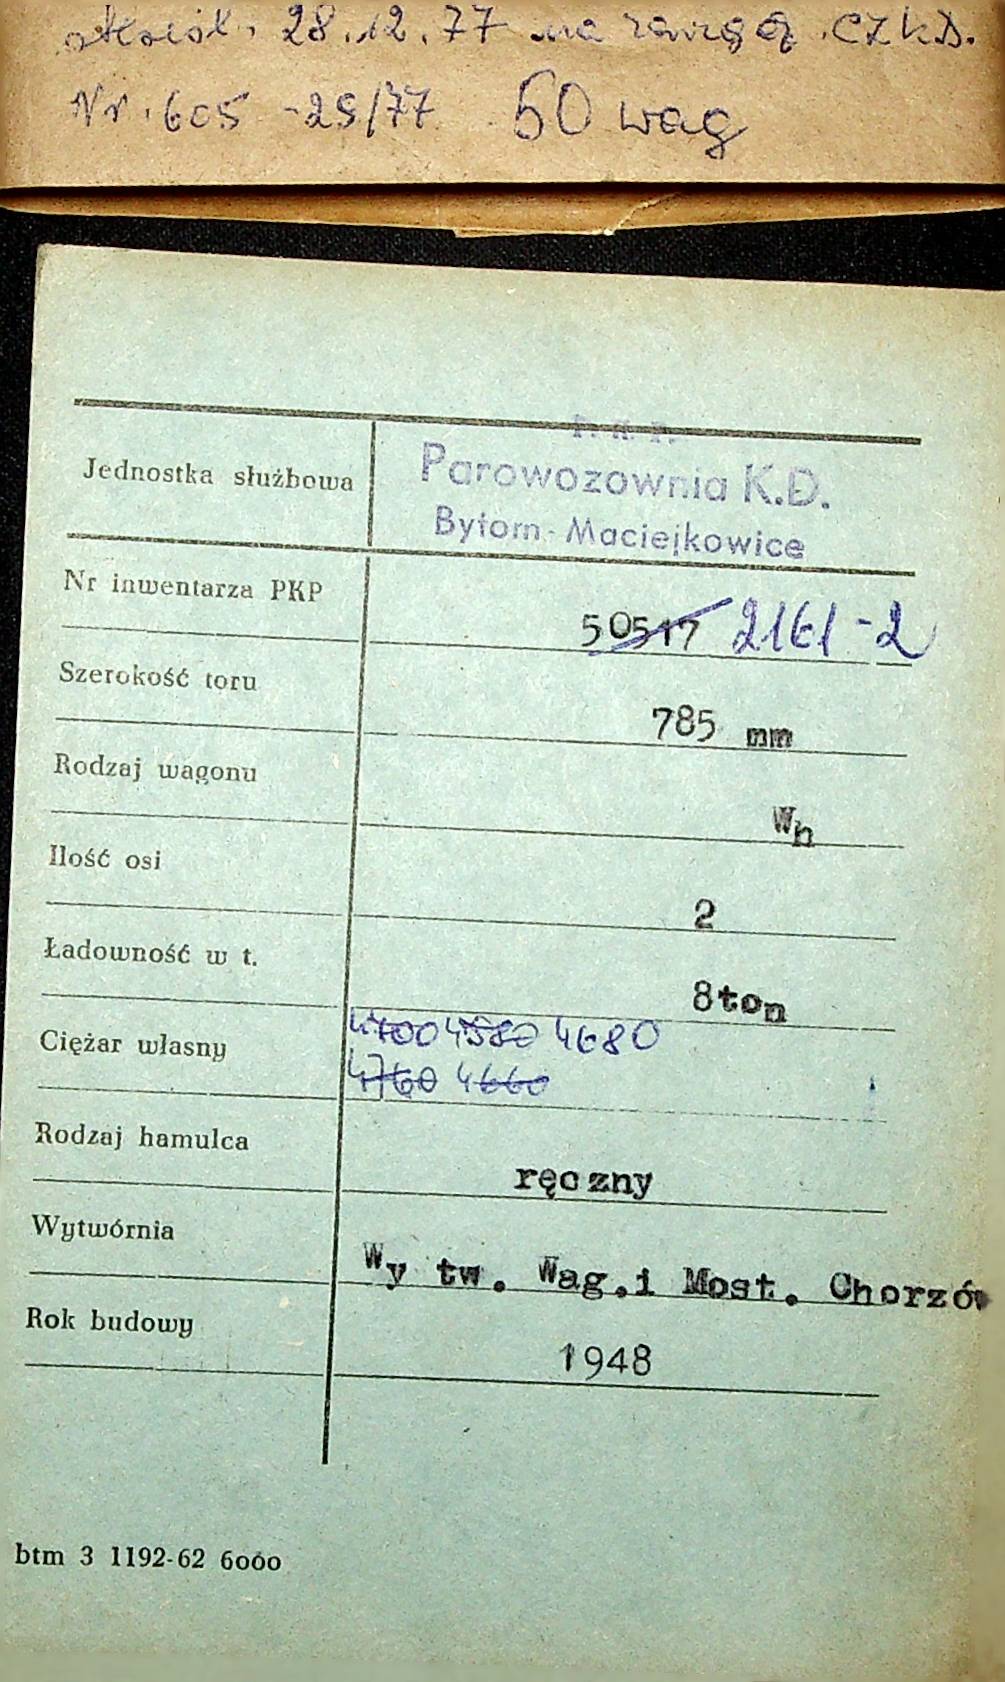 28.12.77 na
Nr. 605 -29/77 50 wag
P. K. P.
Jednostka służbowa Parowozownia K.D.
Bytom-Maciejkowice
Nr inwentarza PKP 50517 2161-2
Szerokość toru 785 mm
Rodzaj wagonu Wh
Ilość osi 2
Ładowność w t. 8ton
Ciężar własny 4700 4580 4680
4760 4660
Rodzaj hamulca ręczny
Wytwórnia Wytw. Wag.i Most. Chorzów
Rok budowy 1948
btm 3 1192-62 6000